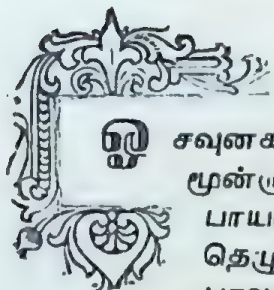 ஓ சவுனக
மூன்மு
பாய
தெழு